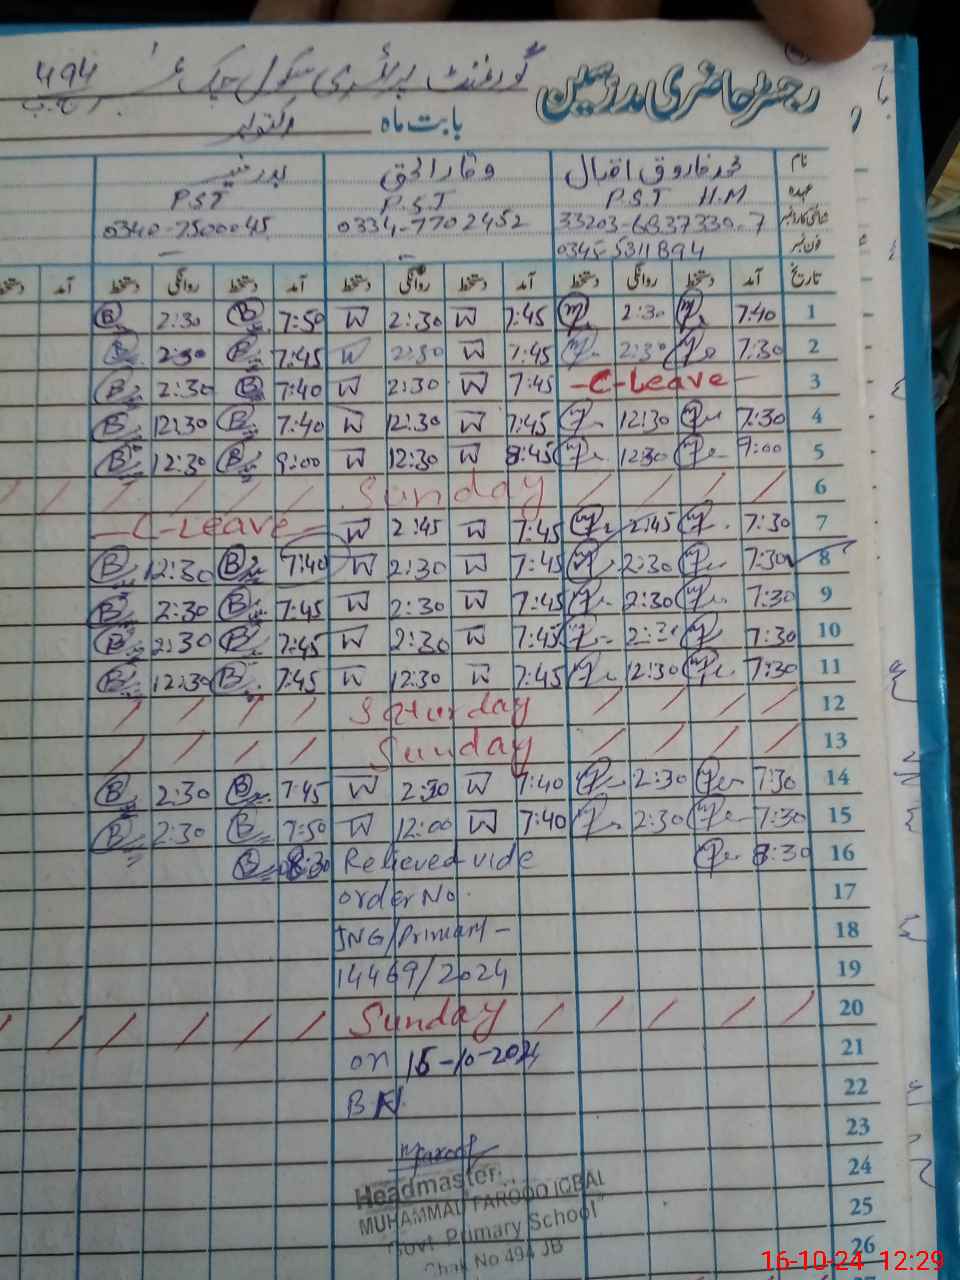 رجسٹر حاضری مدرسین گورنمنٹ پرائمری سکول چک نمبر 494 ج ب
بابت ماہ اکتوبر
نام محمد فاروق اقبال وقار الحق بدر منیر
عہدہ P.S.T H.M P.S.T P.S.T
شناختی کارڈ نمبر 33203-6837339-7 0334-7702452 0340-7500045
فون نمبر 0345-5311894
تاریخ آمد دستخط روانگی دستخط آمد دستخط روانگی دستخط آمد دستخط روانگی دستخط آمد دستخط
1 7:40 2:30 7:45 W 2:30 W 7:50 B 2:30 B
2 7:30 2:30 7:45 W 2:30 W 7:45 B 2:30 B
3 -C-Leave- 7:45 W 2:30 W 7:40 B 2:30 B
4 7:30 12:30 7:45 W 12:30 W 7:40 B 12:30 B
5 9:00 12:30 8:45 W 12:30 W 9:00 B 12:30 B
6 Sunday
7 7:30 2:45 7:45 W 2:45 W -C-Leave-
8 7:30 2:30 7:45 W 2:30 W 7:40 B 12:30 B
9 7:30 2:30 7:45 W 2:30 W 7:45 B 2:30 B
10 7:30 2:30 7:45 W 2:30 W 7:45 B 2:30 B
11 7:30 12:30 7:45 W 12:30 W 7:45 B 12:30 B
12 Saturday
13 Sunday
14 7:30 2:30 7:40 W 2:30 W 7:45 B 2:30 B
15 7:30 2:30 7:40 W 12:00 W 7:50 B 2:30 B
16 8:30 Relieved vide 8:30 B
17 order No.
18 JNG/Primary-
19 14469/2024
20 Sunday
21 on 15-10-2024
22 B.N.
23
24 Headmaster
25 MUHAMMAD FAROOQ IQBAL
Govt. Primary School
26 Chak No 494 JB
16-10-24 12:29